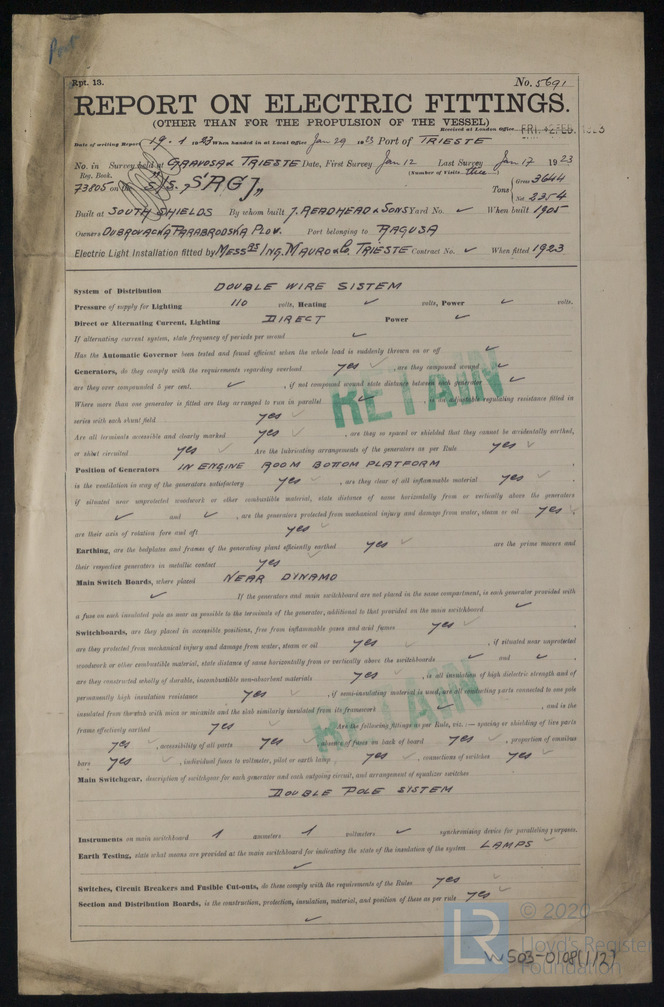 Rpt. 13.
No. 5691
REPORT ON ELECTRIC FITTINGS.
(OTHER THAN FOR THE PROPULSION OF THE VESSEL)
Received at London Office FRI. 2 FEB. 1923
Date of writing Report 19.1 1923 When handed in at Local Office Jan 29 1923 Port of TRIESTE
No. in Survey held at GRAVOSA & TRIESTE Date, First Survey Jan 12 Last Survey Jan 17 1923
Reg. Book. (Number of Visits three)
73805 on the S/S. „SRGJ„ Tons Gross 3644
Net 2354
Built at SOUTH SHIELDS By whom built J. READHEAD & SONS Yard No. ✓ When built 1905
Owners DUBROVACKA PARABRODSKA PLOV. Port belonging to RAGUSA
Electric Light Installation fitted by MESSRS ING. MAURO & Co. TRIESTE Contract No. ✓ When fitted 1923
System of Distribution DOUBLE WIRE SISTEM
Pressure of supply for Lighting 110 volts, Heating ✓ volts, Power ✓ volts.
Direct or Alternating Current, Lighting DIRECT Power ✓
If alternating current system, state frequency of periods per second ✓
Has the Automatic Governor been tested and found efficient when the whole load is suddenly thrown on or off ✓
Generators, do they comply with the requirements regarding overload yes ✓, are they compound wound ✓
are they over compounded 5 per cent. ✓, if not compound wound state distance between each generator ✓
Where more than one generator is fitted are they arranged to run in parallel ✓, is an adjustable regulating resistance fitted in
series with each shunt field yes ✓
RETAIN
Are all terminals accessible and clearly marked yes ✓, are they so spaced or shielded that they cannot be accidentally earthed,
or short circuited yes ✓ Are the lubricating arrangements of the generators as per Rule yes ✓
Position of Generators IN ENGINE ROOM BOTTOM PLATFORM
is the ventilation in way of the generators satisfactory yes ✓, are they clear of all inflammable material yes ✓
if situated near unprotected woodwork or other combustible material, state distance of same horizontally from or vertically above the generators
✓ and ✓, are the generators protected from mechanical injury and damage from water, steam or oil yes ✓
are their axis of rotation fore and aft yes ✓
Earthing, are the bedplates and frames of the generating plant efficiently earthed yes ✓ are the prime movers and
their respective generators in metallic contact yes
Main Switch Boards, where placed NEAR DYNAMO
✓ If the generators and main switchboard are not placed in the same compartment, is each generator provided with
a fuse on each insulated pole as near as possible to the terminals of the generator, additional to that provided on the main switchboard ✓
Switchboards, are they placed in accessible positions, free from inflammable gases and acid fumes yes ✓
are they protected from mechanical injury and damage from water, steam or oil yes ✓, if situated near unprotected
woodwork or other combustible material, state distance of same horizontally from or vertically above the switchboards ✓ and ✓,
are they constructed wholly of durable, incombustible non-absorbent materials yes ✓, is all insulation of high dielectric strength and of
permanently high insulation resistance yes ✓, if semi-insulating material is used, are all conducting parts connected to one pole
insulated from the slab with mica or micanite and the slab similarly insulated from its framework ✓, and is the
frame effectively earthed yes ✓ Are the following fittings as per Rule, viz.:— spacing or shielding of live parts
RETAIN
yes ✓, accessibility of all parts yes ✓, absence of fuses on back of board yes ✓, proportion of omnibus
bars yes ✓, individual fuses to voltmeter, pilot or earth lamp yes ✓, connections of switches yes ✓
Main Switchgear, description of switchgear for each generator and each outgoing circuit, and arrangement of equalizer switches
DOUBLE POLE SISTEM
Instruments on main switchboard 1 ammeters 1 voltmeters ✓ synchronising device for paralleling purposes.
Earth Testing, state what means are provided at the main switchboard for indicating the state of the insulation of the system LAMPS ✓
✓
Switches, Circuit Breakers and Fusible Cut-outs, do these comply with the requirements of the Rules yes ✓
Section and Distribution Boards, is the construction, protection, insulation, material, and position of these as per rule yes ✓
✓
LR
© 2020
Lloyd's Register
Foundation
WS03-0108(1/2)